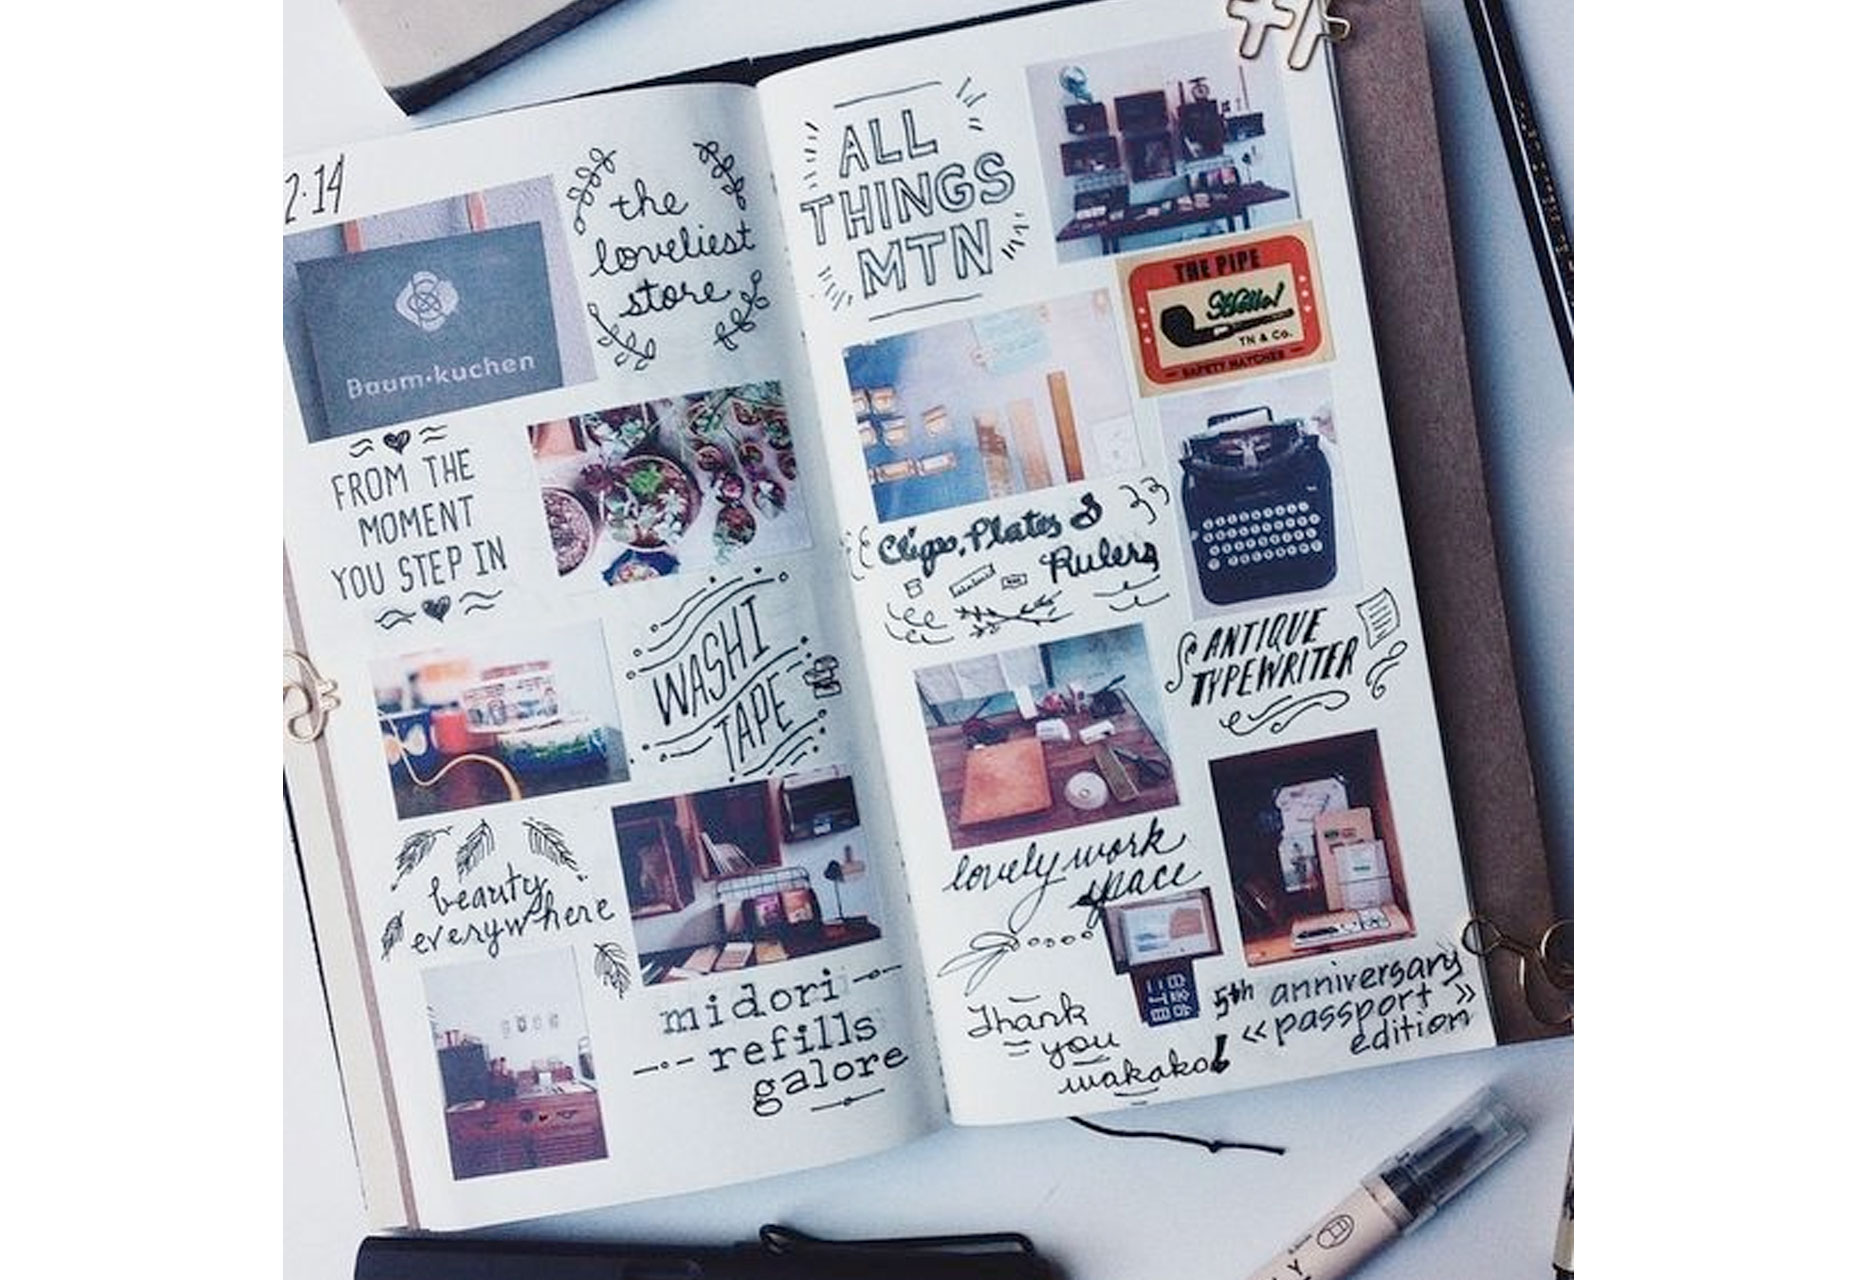 2.14
the
loveliest
store
Baum·kuchen
FROM THE
MOMENT
YOU STEP IN
WASHI
TAPE
beauty
everywhere
midori
refills
galore
ALL
THINGS
MTN
THE PIPE
Hello!
TN & Co.
SAFETY MATCHES
Clips, Plates &
Rulers
ANTIQUE
TYPEWRITER
lovely work
space
5th anniversary
«passport »
edition
Thank
you
wakako!